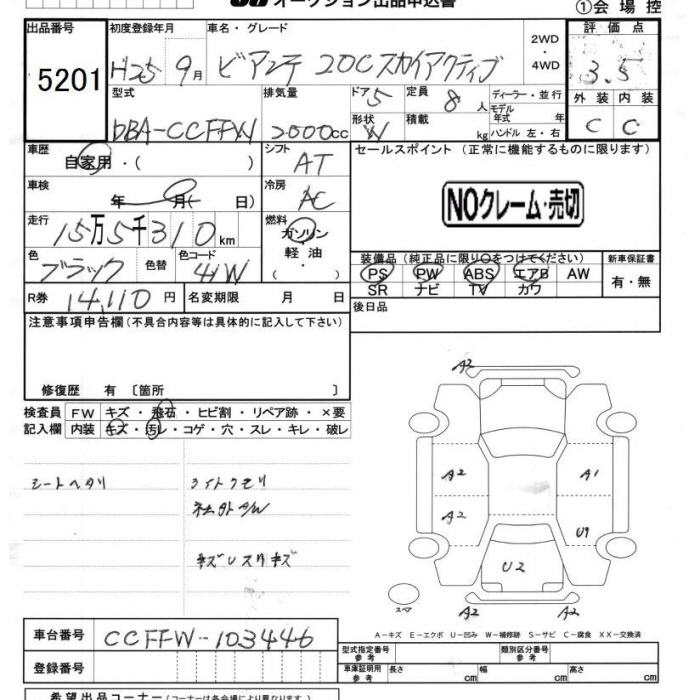 オークション出品申込書
①会場控
出品番号 初度登録年月 車名・グレード 評価点
5201 H25 9月 ビアンテ 20C スカイアクティブ 2WD・4WD 3.5
型式 排気量 ドア 5 定員 8人 ディーラー・並行 外装 内装
DBA-CCFFW 2000cc 形状 W 積載 kg モデル年式 年 ハンドル 左・右 C C
車歴 シフト セールスポイント (正常に機能するものに限ります)
自家用・( ) AT
車検 年 月( 日) 冷房 AC
NOクレーム・売切
走行 15万5千310km 燃料 ガソリン・軽油・( )
色 ブラック 色替 色コード 41W
装備品 (純正品に限り○をつけてください) 新車保証書
PS PW ABS エアB AW 有・無
SR ナビ TV カワ
R券 14,110円 名変期限 月 日
後日品
注意事項申告欄 (不具合内容等は具体的に記入して下さい)
修復歴 有 〔箇所 〕
検査員 FW キズ・飛石・ヒビ割・リペア跡・×要
記入欄 内装 キズ・汚レ・コゲ・穴・スレ・キレ・破レ
シートヘタリ ライトクモリ
社外AW
キズUスリキズ
A2
A2 A1
A2 U1
U2
A2 A2
スペア
A-キズ E-エクボ U-凹み W-補修跡 S-サビ C-腐食 XX-交換済
車台番号 CCFFW-103446
型式指定番号 参考 類別区分番号 参考
登録番号
車庫証明用 参考 長さ cm 幅 cm 高さ cm
希望出品コーナー (コーナーは各会場により異なります)